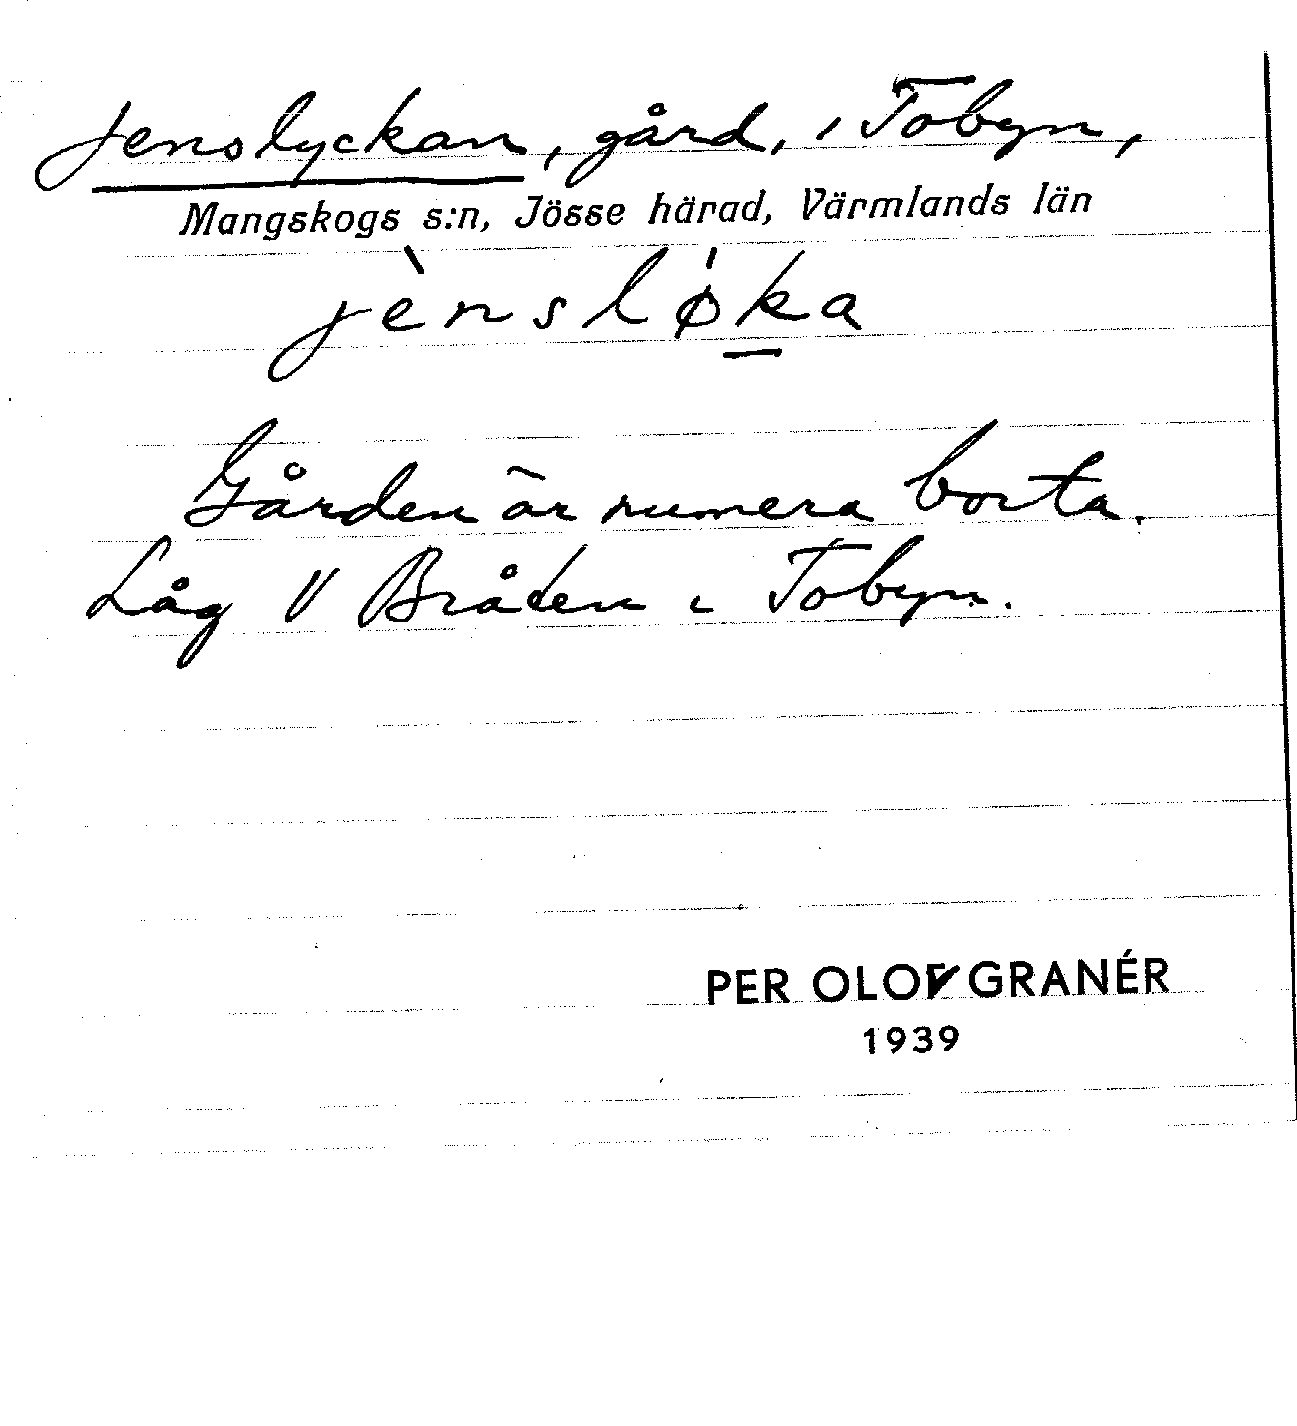 Jenslyckan, gård, i Tobyn,
Mangskogs s:n, Jösse härad, Värmlands län
jènsløka
Gården är numera borta.
Låg V Bråten i Tobyn.
PER OLOF GRANÉR
1939